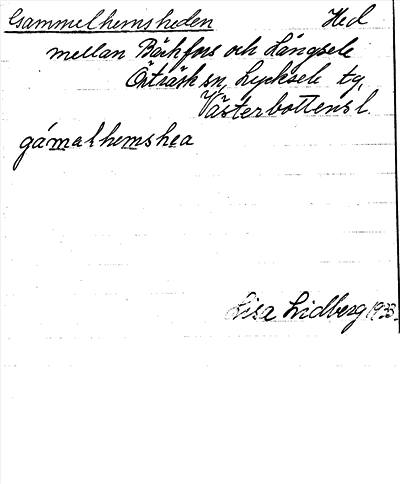 Gammelhemsheden Hed
mellan Bäckfors och Långsele
Örträsk sn, Lycksele tg,
Västerbottens l.
gámalhemshea
Lisa Lidberg 1933.